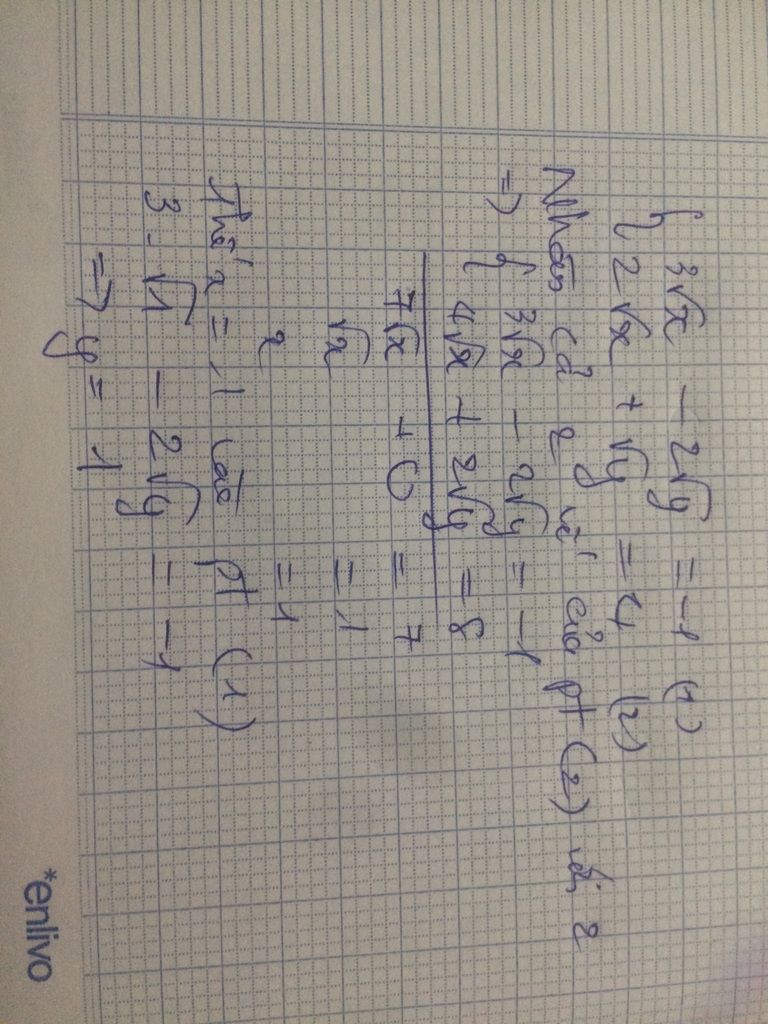 { 3√x - 2√y = -1 (1)
{ 2√x + √y = 4 (2)
Nhân cả 2 vế của pt (2) với 2
=> { 3√x - 2√y = -1
{ 4√x + 2√y = 8
7√x + 0 = 7
√x = 1
x = 1
Thế x = 1 vào pt (1)
3.√1 - 2√y = -1
=> y = 1
*enlivo